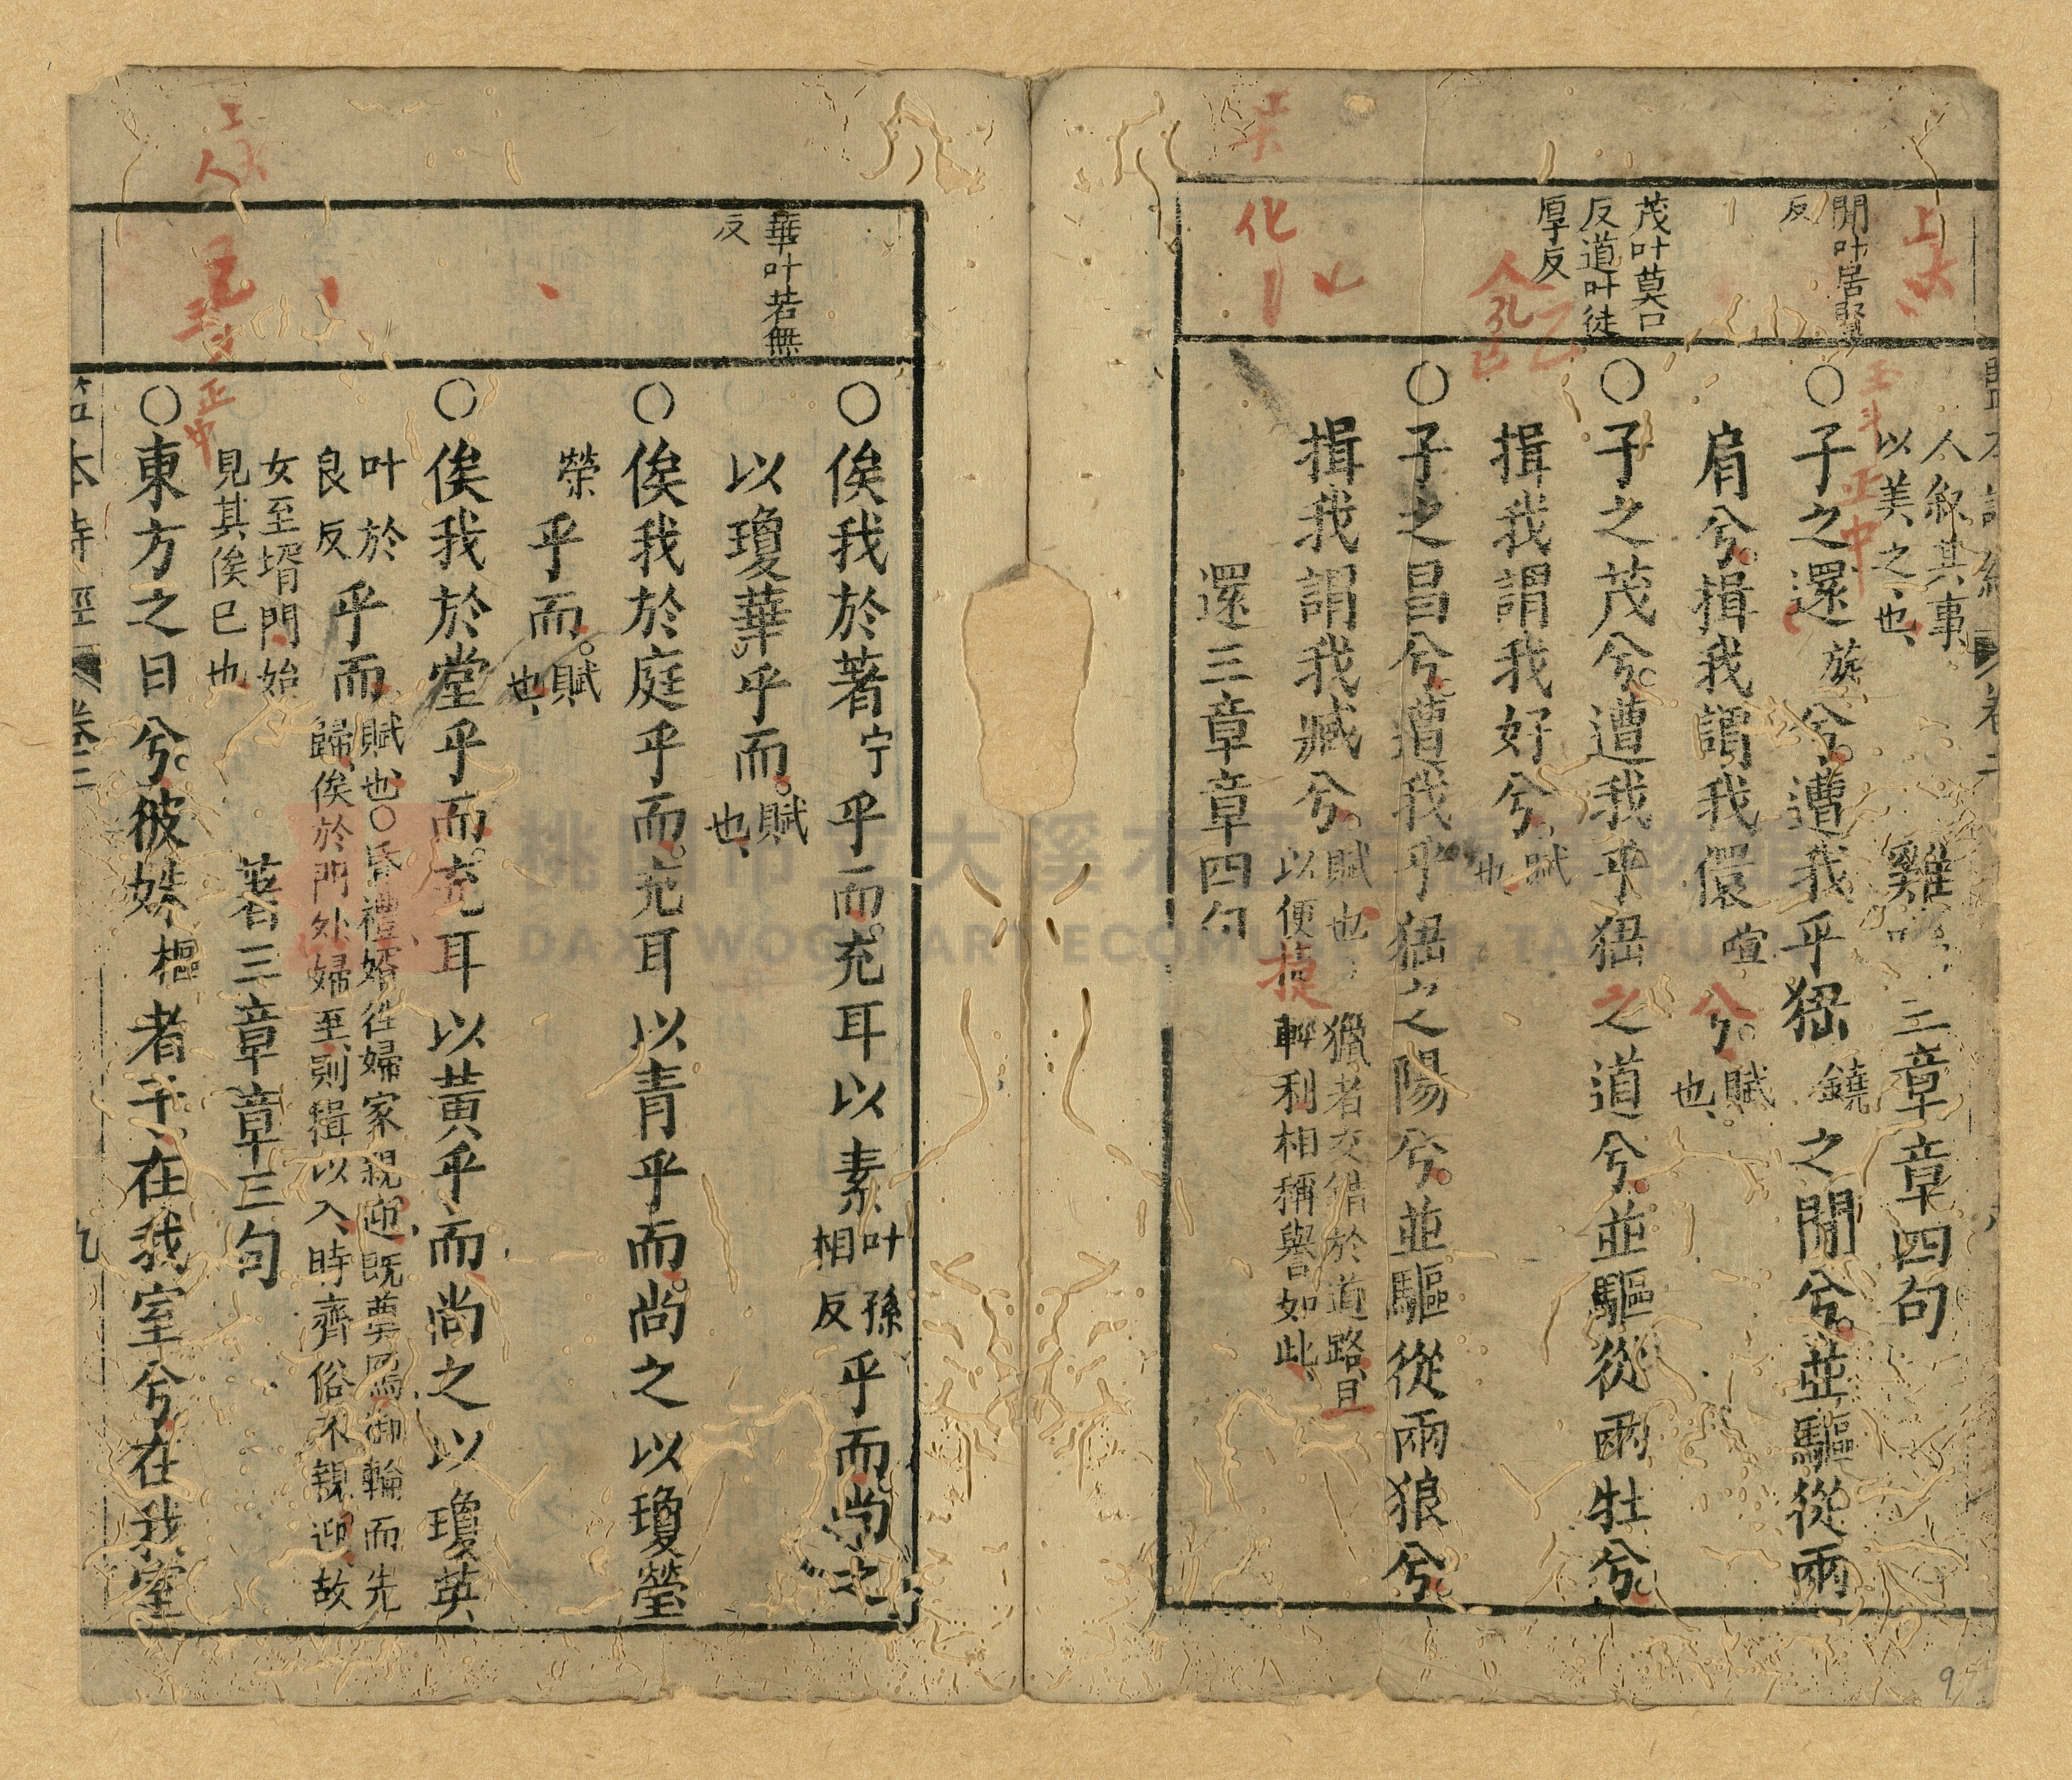 人叙其事
以美之也
雞 三章章四句
開叶居賢
反
○子之還旋兮遭我乎猺鐃之閒兮並驅從兩
肩兮揖我謂我儇喧兮賦
也
茂叶莫口
反道叶徒
厚反
○子之茂兮遭我乎猺之道兮並驅從兩牡兮
揖我謂我好兮賦
也
○子之昌兮遭我乎猺之陽兮並驅從兩狼兮
揖我謂我臧兮賦也 獵者交錯於道路且
以便捷輕利相稱譽如此
還三章章四句
化
○俟我於著宁乎而充耳以素叶孫
相反乎而尚之
華叶若無
反
以瓊華乎而賦
也
○俟我於庭乎而充耳以青乎而尚之以瓊瑩
榮乎而賦
也
○俟我於堂乎而充耳以黃乎而尚之以瓊英
叶於
良反乎而賦也○昏禮婿徃婦家親迎既奠鴈御輪而先
歸俟於門外婦至則揖以入時齊俗不親迎故
女至壻門始
見其俟已也
著三章章三句
○東方之日兮彼姝樞者子在我室兮在我室
本詩經 卷三
九
9
桃 市 大溪木
DA WOO ART ECOMU